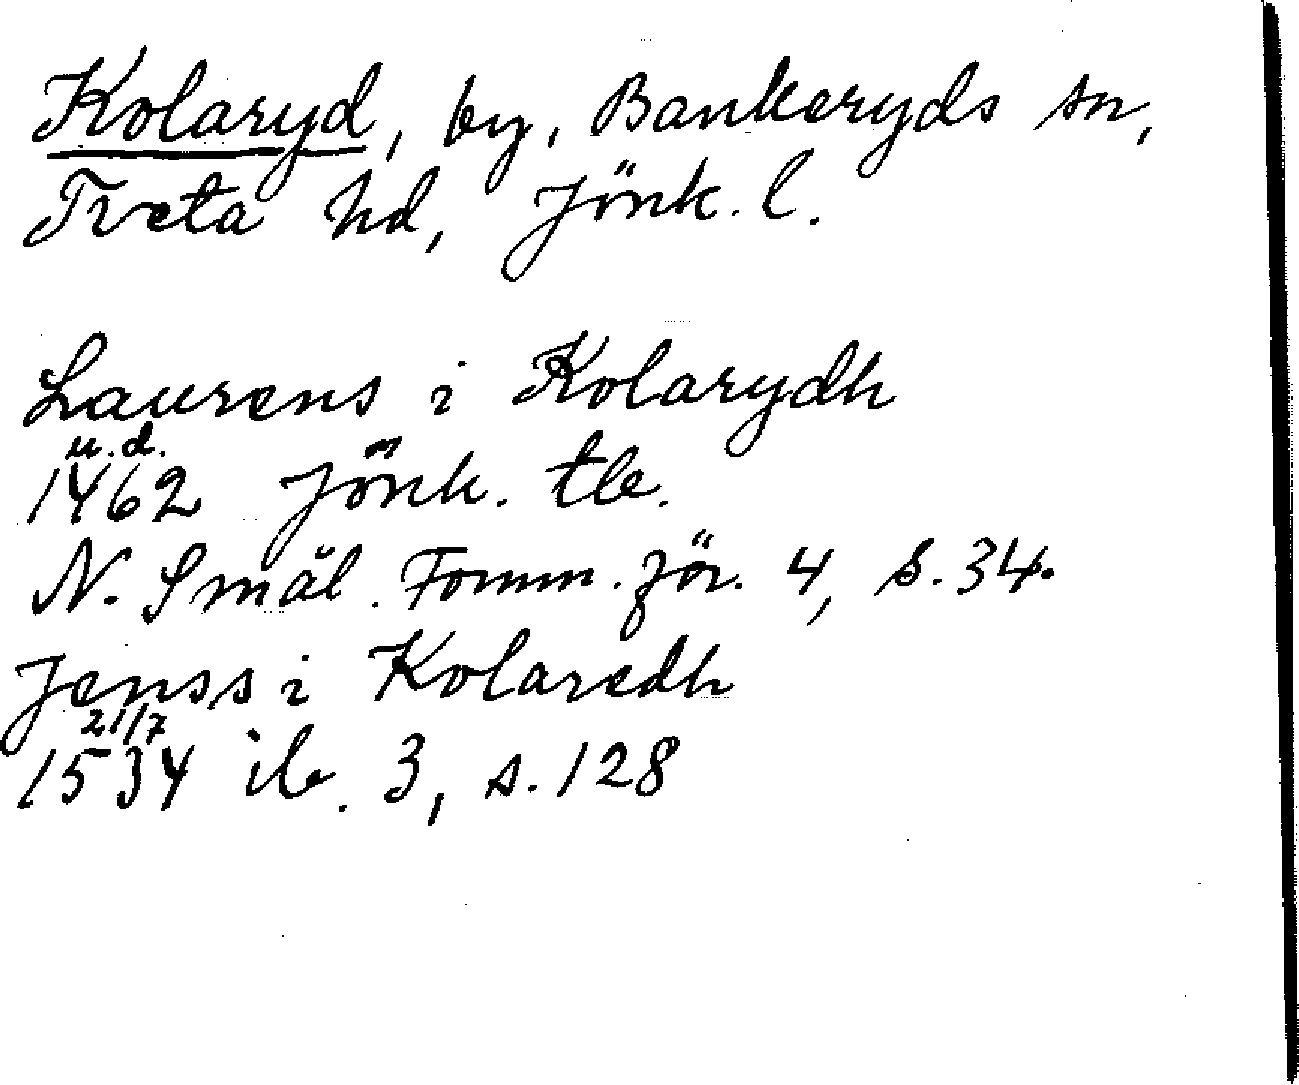 Kolaryd, by, Bankeryds sn,
Tveta hd, Jönk. l.
Laurens i Kolarydh
u.d.
1462 Jönk. tb.
N. Smål. Fornm. för. 4, s. 34.
Jenss i Kolaredh
21/7
1534 ib. 3, s. 128